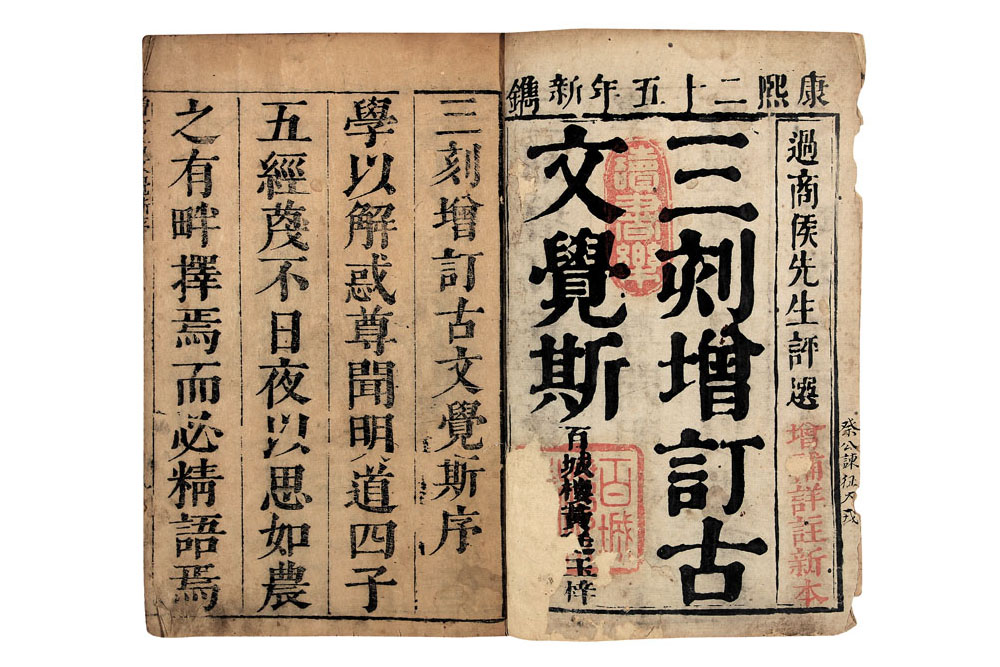 康熙二十五年新鐫
過商侯先生評選
增補詳註新本
祭公諫征犬戎
三刻增訂古
文覺斯
讀書樂
百城樓黃玉梓
百城
三刻增訂古文覺斯序
學以解惑尊聞明道四子
五經蔑不日夜以思如農
之有畔擇焉而必精語焉